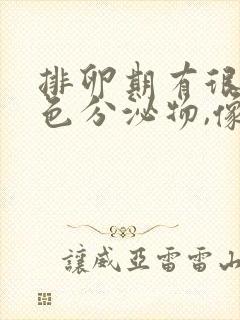 排卵期有很
色分泌物,像
讓威亞雷雷山